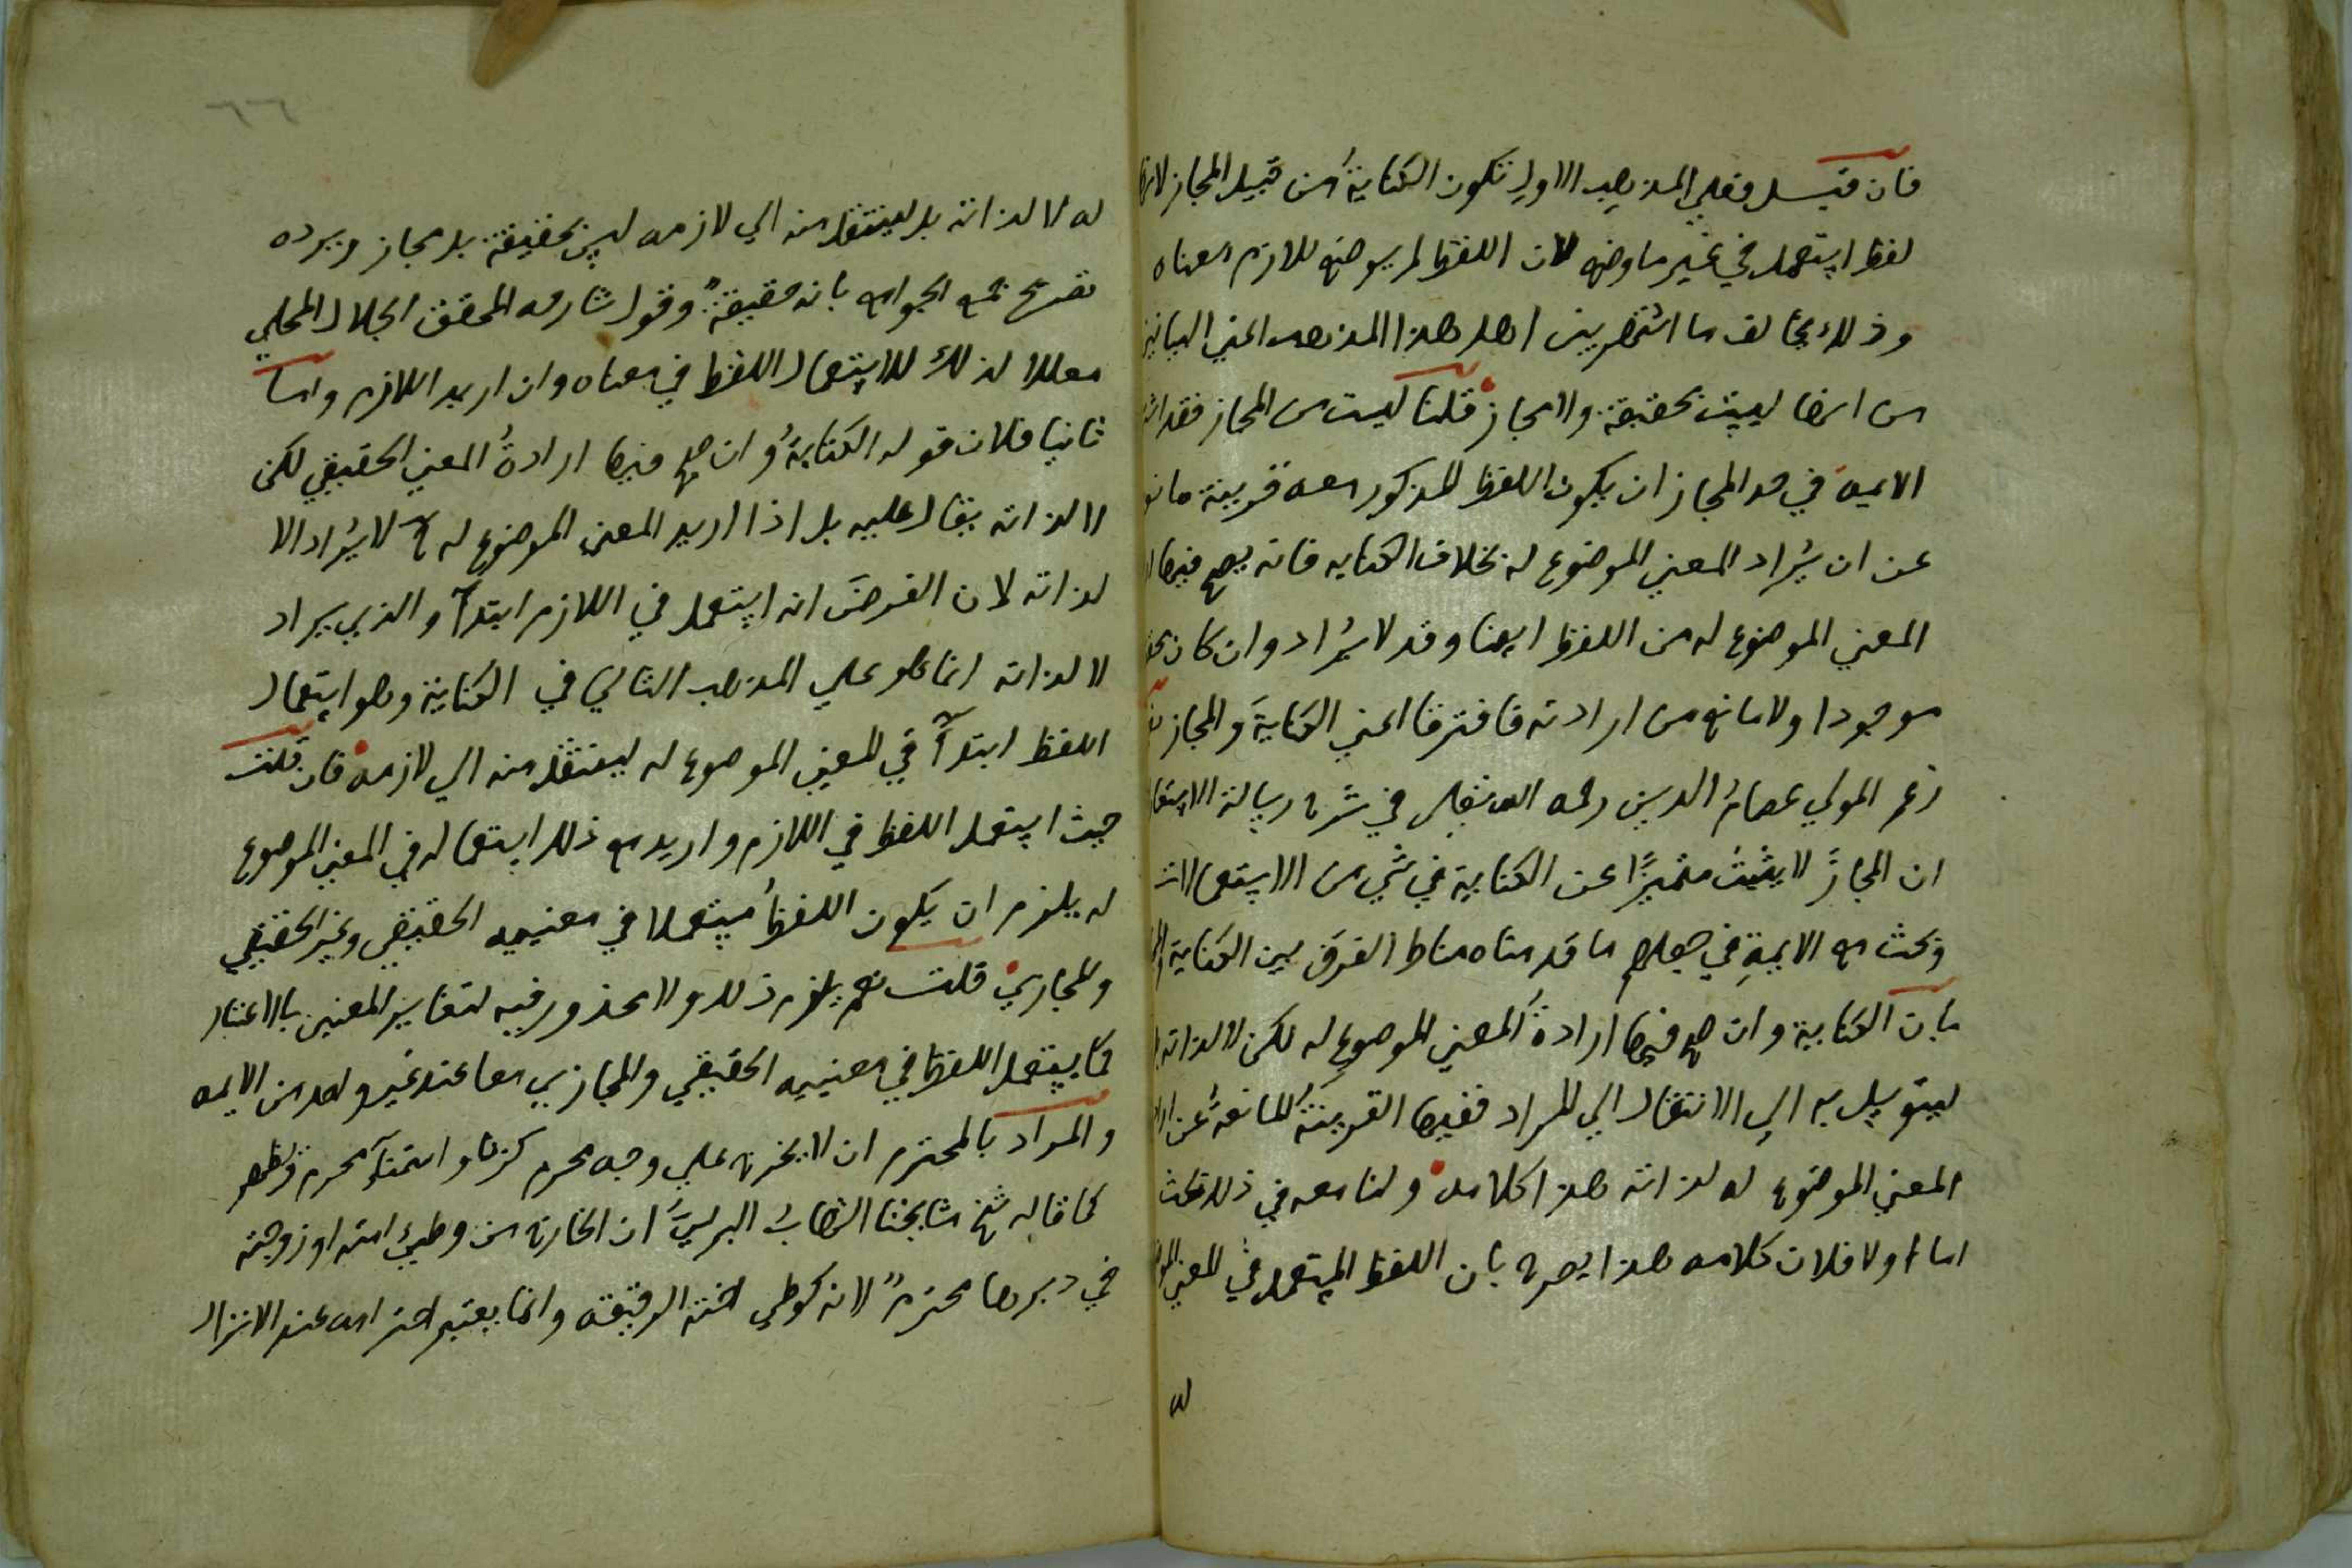 فان قيل فعلي المذهب الاول تكون الكناية من قبيل المجاز لانها
لفظ استعمل في غير ما وضع لان اللفظ لم يوضع للازم معناه
وذلك يخالف ما اشتهر بين اهل هذا المذهب اعني البيانيين
من انها ليست بحقيقة ولا مجاز قلنا ليست من المجاز فقد
الايمة في حد المجاز ان يكون اللفظ المذكور معه قرينة مانعة
عن ان يراد المعني الموضوع له بخلاف الكنايه فانه يصح فيها
المعني الموضوع له من اللفظ ايضا وقد لا يراد وان كان
موجودا ولا مانع من ارادته فافترقا اعني الكناية والمجاز
زعم المولي عصام الدين رحمه الله تعالي في شرح رسالة الاستعارة
ان المجاز لا يثبت متميزا عن الكناية في شي من الاستعمالات
وبحث مع الايمة في جعلهم ما قدمناه مناط الفرق بين الكناية
بان الكناية وان صح فيها ارادة المعني الموضوع له لكن لا لذاته
ليتوسل به الي الانتقال الي المراد ففيها القرينة المانعة عن
المعني الموضوع له لذاته هذا كلامه ولنا معه في ذلك بحث
اما اولا فلان كلامه هذا يصرح بان اللفظ المستعمل في المعني
له
٦٦
له لا لذاته بل لينتقل منه الي لازمه ليس بحقيقة بل مجاز ويرده
تصريح جمع الجوامع بانه حقيقة وقول شارحه المحقق الجلال المحلي
معللا لذلك للاستعمال اللفظ في معناه وان اريد اللازم واما
ثانيا فلان قوله الكناية وان صح فيها ارادة المعني الحقيقي لكن
لا لذاته يقال عليه بل اذا اريد المعني الموضوع له ح لا يراد الا
لذاته لان الفرض انه استعمل في اللازم ابتدآ والذي يراد
لا لذاته انما هو علي المذهب الثاني في الكناية وهو استعمال
اللفظ ابتدآ في المعني الموضوع له لينتقل منه الي لازمه فان قلت
حيث استعمل اللفظ في اللازم واريد مع ذلك استعماله في المعني الموضوع
له يلزم ان يكون اللفظ مستعملا في معنييه الحقيقي وغير الحقيقي
والمجازي قلت نعم يلزم ذلك ولا محذور فيه لتغاير المعنيين بالاعتبار
كما يستعمل اللفظ في معنييه الحقيقي والمجازي معا عند غير واحد من الايمه
والمراد بالمحترم ان لا يخرج علي وجه محرم كزنا واستمنآ محرم
كما قاله شيخ مشايخنا الشهاب البرلسي ان الخارج من وطئ امته او زوجته
في دبرها محترم لانه كوطي اخته الرقيقه وانما يعتبر احترامه عند الانزال